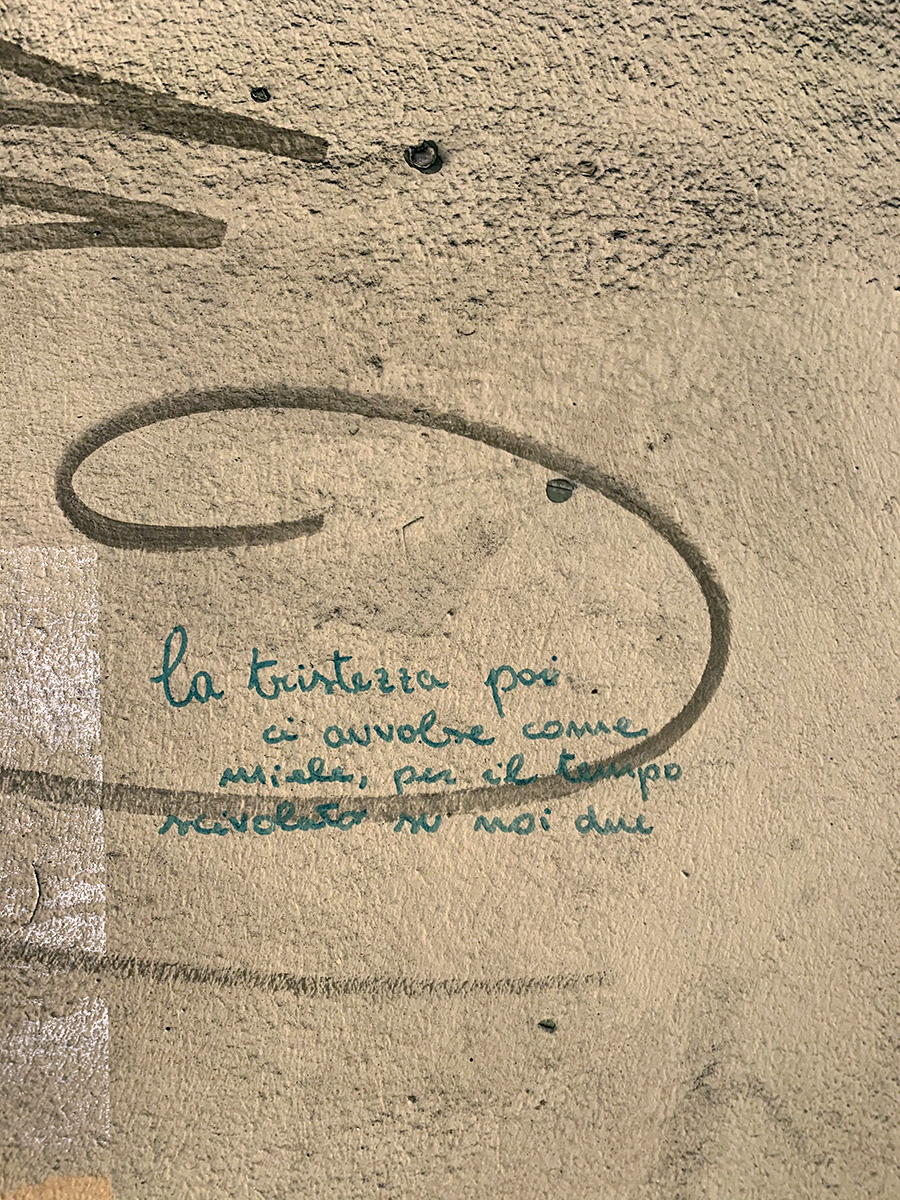 la tristezza poi
ci avvolse come
miele, per il tempo
scivolato su noi due